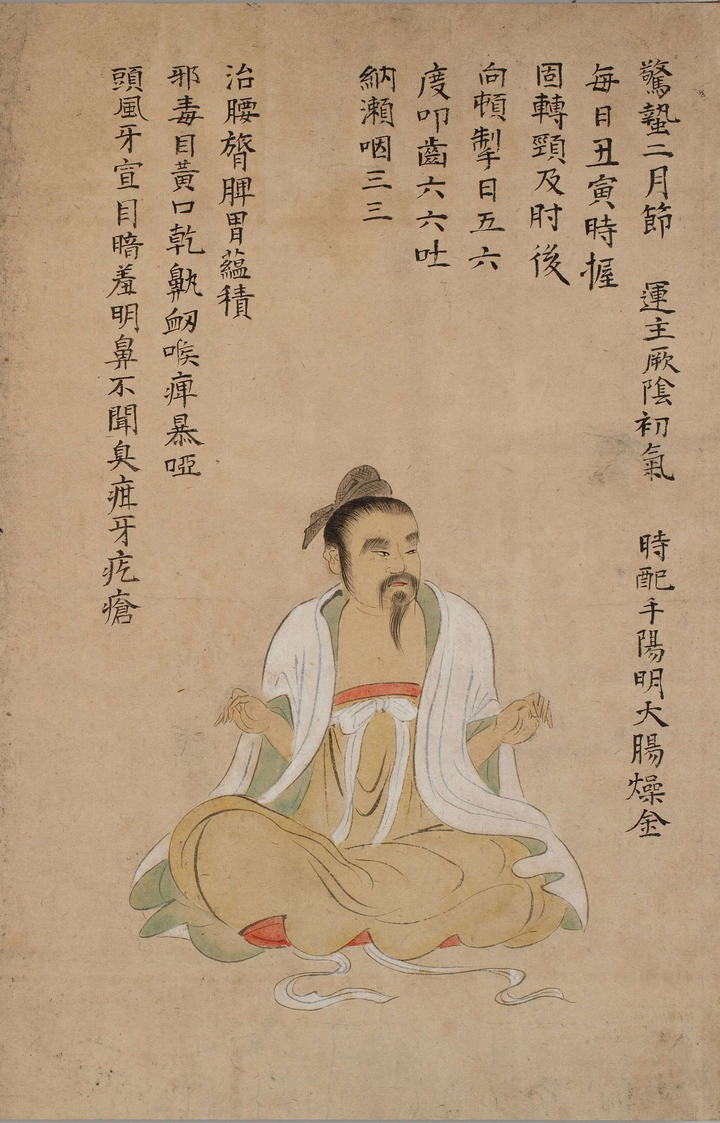 驚蟄二月節 運主厥陰初氣 時配手陽明大腸燥金
每日丑寅時握
固轉頸及肘後
向頓掣日五六
度叩齒六六吐
納漱咽三三
治腰膂脾胃蘊積
邪毒目黃口乾鼽衄喉痺暴啞
頭風牙宣目暗羞明鼻不聞臭疽牙疙瘡